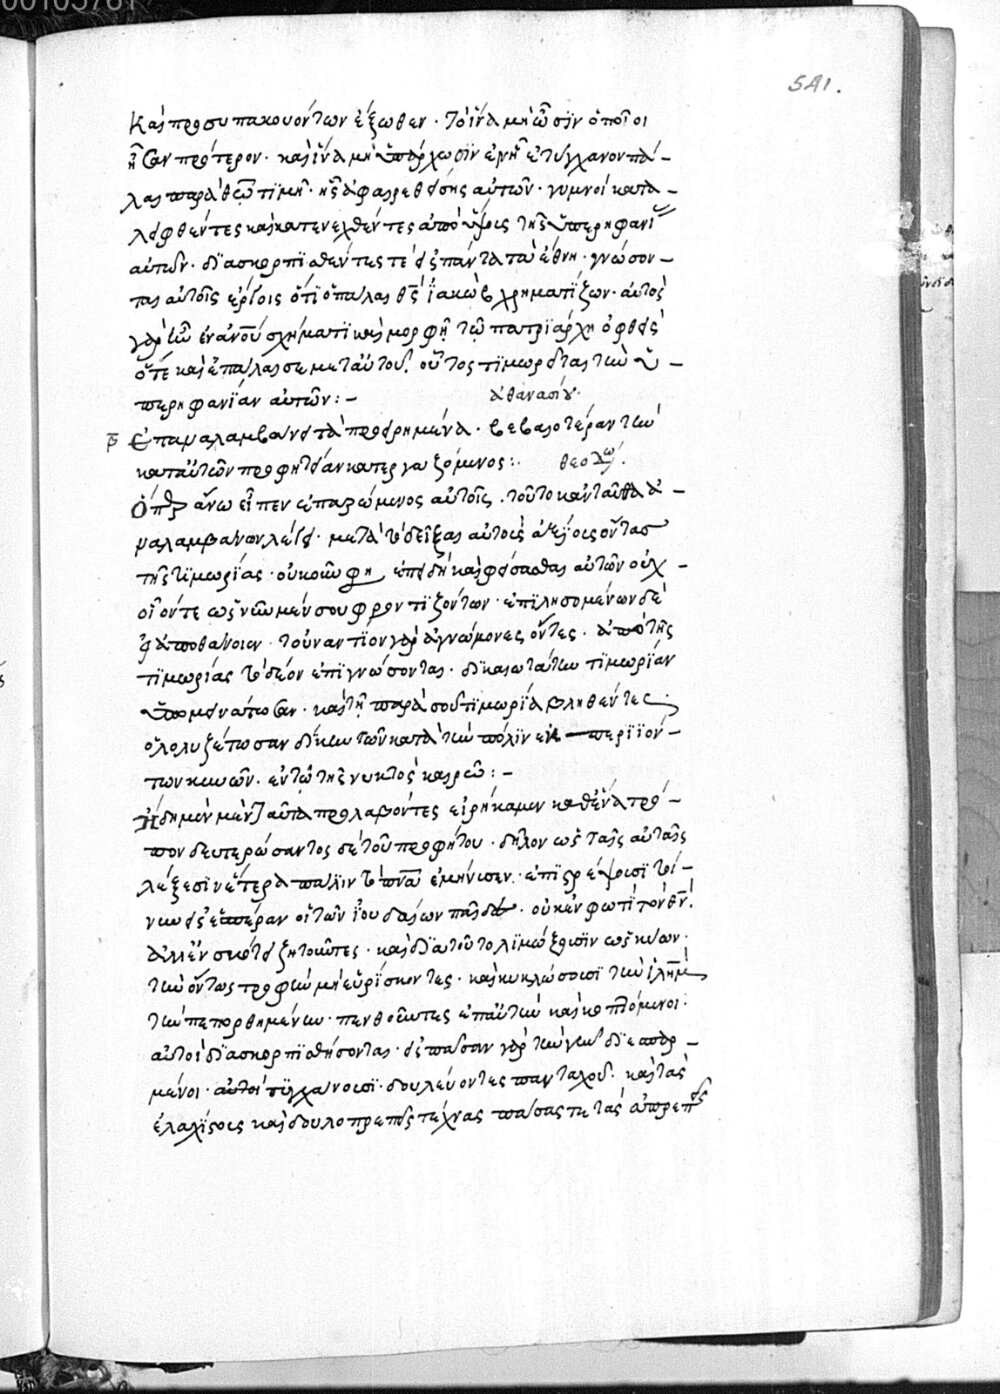 00105781
541.
καὶ προσυπακουόντων ἔξωθεν · τὸ ἵνα μὴ ὦσϊν ὁποῖοι
ἦσαν πρότερον · καὶ ἵνα μὴ ὑπάρχωσϊν ἐν ᾗ ἐτύγχανον πά-
λαι παρὰ θεῶ τϊμῇ · ἧς ἀφαιρεθείσης αὐτῶν · γυμνοὶ κατα-
λειφθέντες καὶ κατενεχθέντες ἀπὸ ὕψους τῆς ὑπερηφανίας
αὐτῶν · διασκορπϊσθέντες τὲ εἰς πάντα τὰ ἔθνη · γνώσον-
ται αὐτοῖς ἔργοις ὅτϊ ὁ πάλαι θς ἰακὼβ χρηματίζων · αὐτὸς
γὰρ ἦν ἐν ἀνου σχήματϊ καὶ μορφῇ τῶ πατρϊάρχη ὀφθεὶς
ὅτε καὶ ἐπάλαισε μετ' αὐτοῦ. οὗτος τϊμωρεῖται τὴν ὑ-
περηφανίαν αὐτῶν :-
ἀθανασίου ·
Ἐπαναλαμβάνει τὰ προειρημένα · βεβαιοτέραν τὴν
κατ' αὐτῶν προφητείαν κατεργαζόμενος :·
θεοδώ.
Ὅπερ ἄνω εἶπεν ἐπαρώμενος αὐτοῖς · τοῦτο κἀνταῦθα ἀ-
ναλαμβάνων λέγει · μετὰ τὸ δεῖξαι αὐτοὺς ἀξίους ὄντας
τῆς τϊμωρίας · οὐκοῦν φη ἐπειδὴ καὶ φείσασθαι αὐτῶν οὐχ
οἷόν τε ὡς νῦν μέν σου φροντϊζόντων · ἐπϊλησομένων δὲ
εἰ ἀποθάνοιεν · τοὐναντϊον γὰρ ἀγνώμονες ὄντες · ἀπὸ τῆς
τϊμωρίας τὸ δέον ἐπϊγνώσονται · δϊκαιωτάτην τϊμωρίαν
ὑπομεινάτωσαν · καὶ τῇ παρὰ σοῦ τϊμωρία βληθέντες
ὀλολυζέτωσαν δίκην τῶν κατὰ τὴν πόλϊν περϊϊόν-
των κυνῶν · ἐν τῶ τῆς νυκτὸς καιρῶ :-
Ἤδη μὲν μὲν ταῦτα προλαβόντες εἰρήκαμεν καθ' ἕνα τρό-
πον δευτερώσαντος δὲ τοῦ προφήτου · δῆλον ὡς ταῖς αὐταῖς
λέξεσϊν ἕτερα πάλϊν τὸ πνα ἐμήνϋσεν · ἐπϊστρέψουσϊ τοί-
νυν εἰς ἑσπέραν οἱ τῶν ἰουδαίων παῖδες · οὐκ ἐν φωτὶ τὸν θν
ἀλλ' ἐν σκότει ζητοῦντες · καὶ δϊὰ τοῦτο λϊμώξουσϊν ὡς κύων ·
τὴν ὄντως τροφὴν μὴ εὑρίσκοντες · καὶ κυκλώσουσϊ τὴν ἱλημ
τὴν πεπορθημένην · πενθοῦντες ἐπ' αὐτὴν καὶ κοπτόμενοι ·
αὐτοὶ δϊασκορπϊσθήσονται · εἰς πᾶσαν γὰρ τὴν γῆν δϊεσπαρ-
μένοι · αὐτοὶ τϋγχάνουσϊ · δουλεύοντες πανταχοῦ · καὶ τὰς
ἐλαχίστους καὶ δουλοπρεπεῖς τέχνας πάσας τε τὰς ἀπρεπεῖς